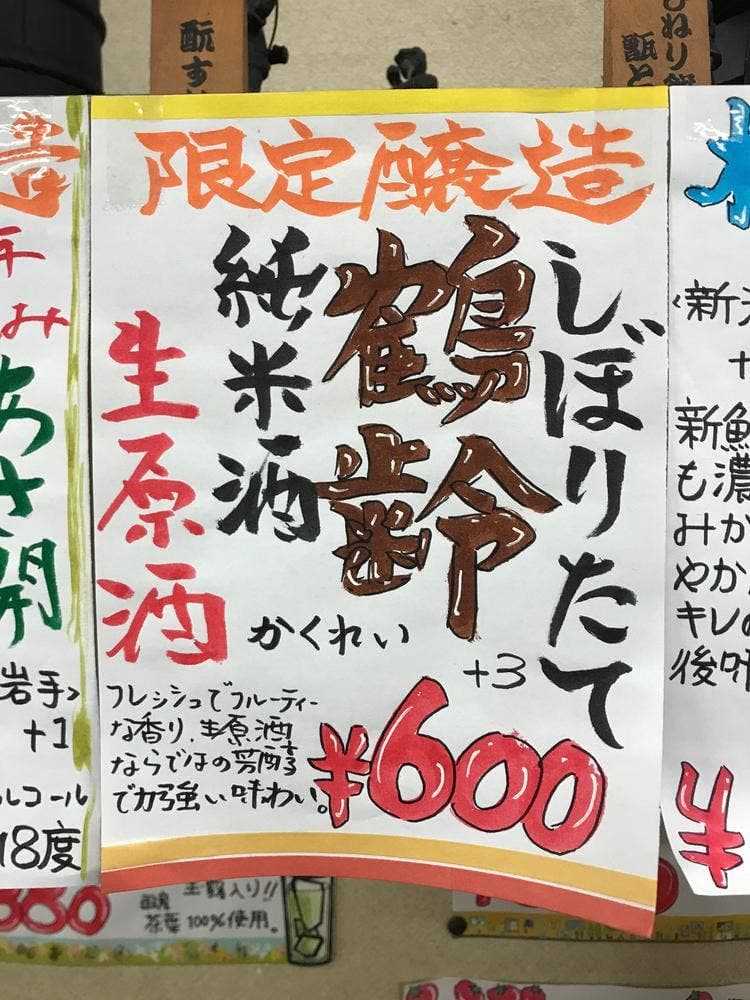 限定醸造
しぼりたて
鶴齢
純米酒
生原酒
かくれい
+3
フレッシュでフルーティー
な香り、生原酒
ならではの芳醇
で力強い味わい。
¥600
あさ開
岩手>
+1
ルコール
18度
新鮮
も濃
みか
やか
キレの
後味
¥
880
茶葉100%使用。